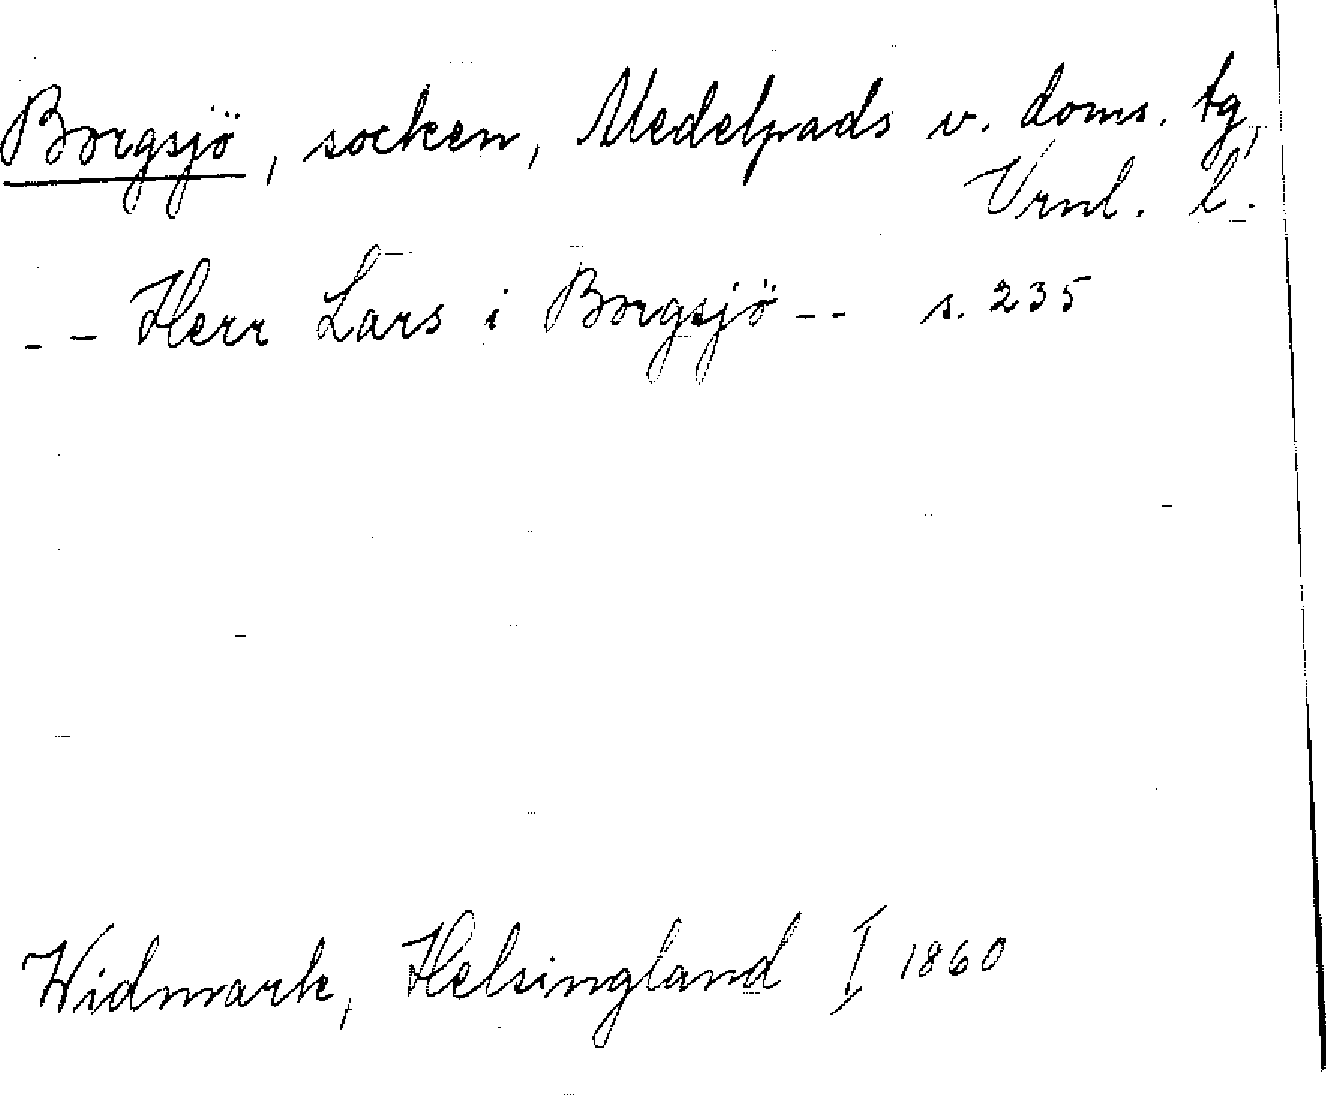 Borgsjö, socken, Medelpads v. doms. tg,
Vrnl. l.
- - Herr Lars i Borgsjö - - s. 235
Widmark, Helsingland I 1860